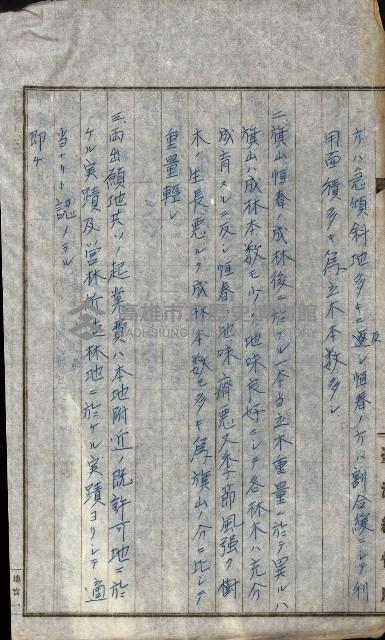 方ハ急傾斜地多キニ反シ恒春ノ方ハ割合緩ニシテ利
用面積多キ為立木本数多シ
二、旗山恒春ノ成林後ニ於ケル一本当立木重量ニ於テ異ルハ
旗山ハ成林本数モ少ク地味良好ニシテ各林木ハ充分
成育スルニ反シ恒春ハ地味瘠悪又季節風強ク樹
木ノ生長悪ルク成林本数モ多キ為旗山ノ分ニ比シテ
重量軽シ
三、両出願地共ソノ起業費ハ本地附近ノ既許可地ニ於
ケル実蹟及営林所造林地ニ於ケル実蹟ヨリシテ適
当ナリト認メラル
即チ
高雄市立歴史博物館
KAOHSIUNG MUSEUM OF HISTORY